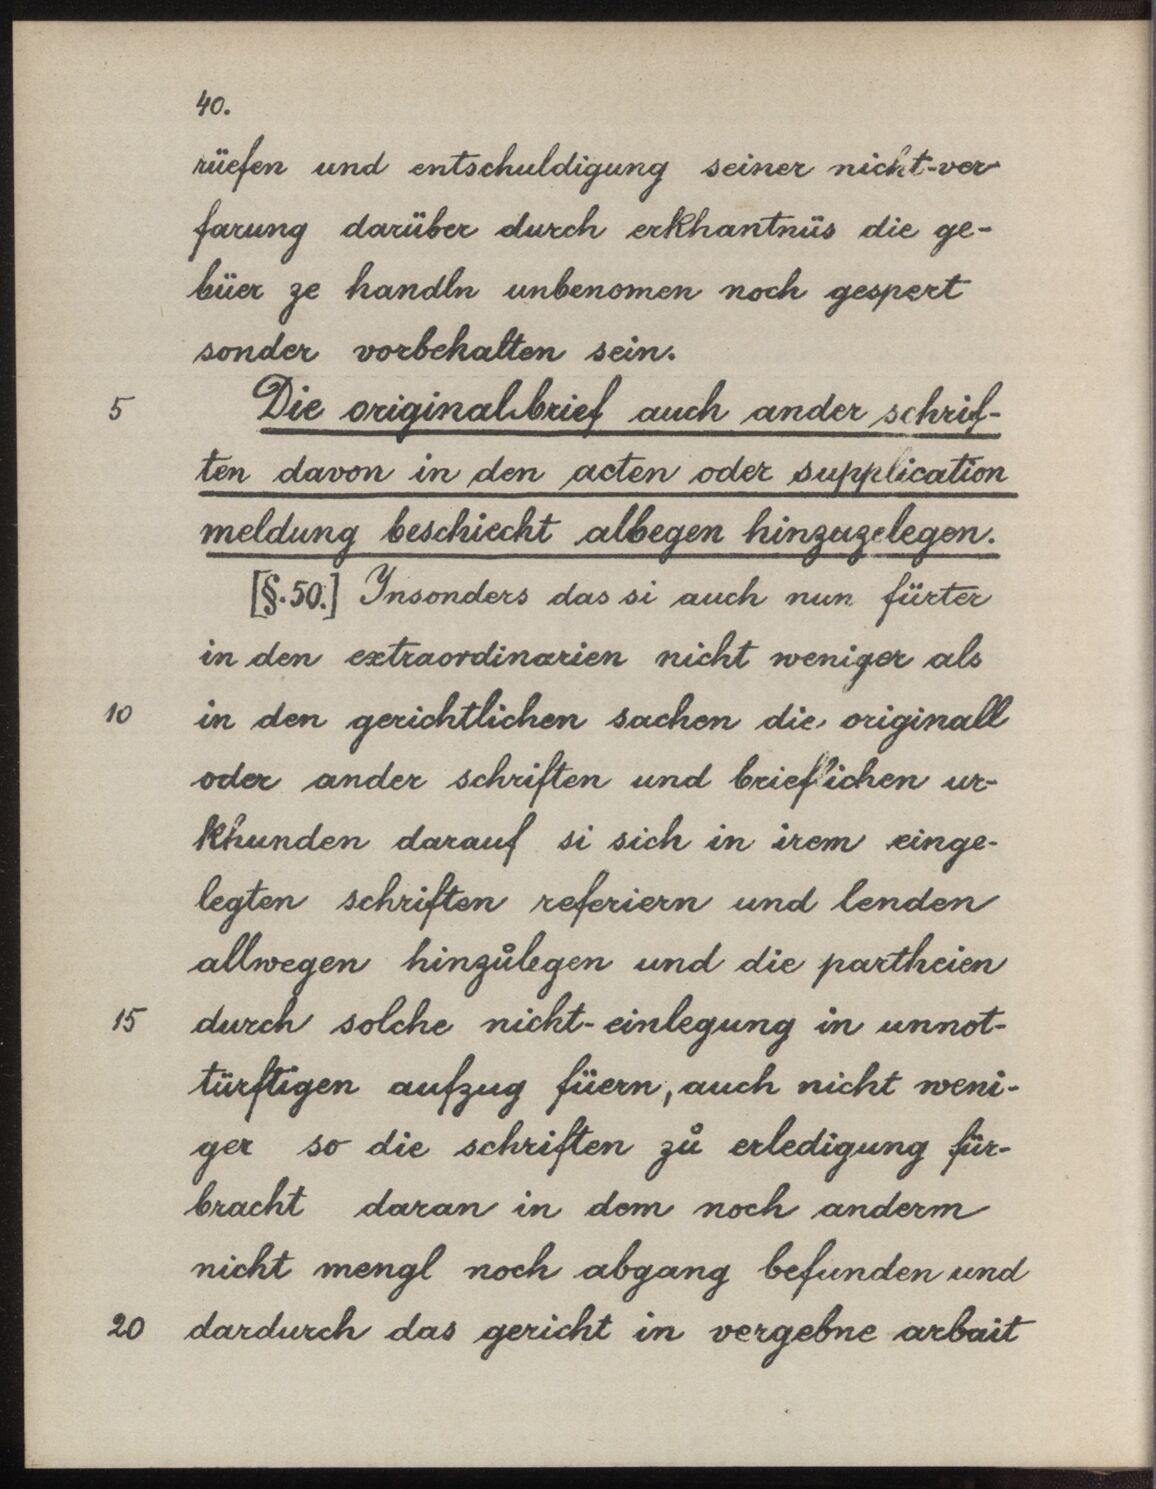 40.
rüefen und entschuldigung seiner nicht-ver-
farung darüber durch erkhantnüs die ge-
büer ze handln unbenomen noch gespert
sonder vorbehalten sein.
5 Die originalbrief auch ander schrif-
ten davon in den acten oder supplication
meldung beschiecht albegen hinzuzelegen.
[§.50.] Insonders das si auch nun fürter
in den extraordinarien nicht weniger als
10 in den gerichtlichen sachen die originall
oder ander schriften und brieflichen ur-
khunden darauf si sich in irem einge-
legten schriften referiern und lenden
allwegen hinzůlegen und die partheien
15 durch solche nicht-einlegung in unnot-
türftigen aufzug füern, auch nicht weni-
ger so die schriften zů erledigung für-
bracht daran in dem noch anderm
nicht mengl noch abgang befunden und
20 dardurch das gericht in vergebne arbait